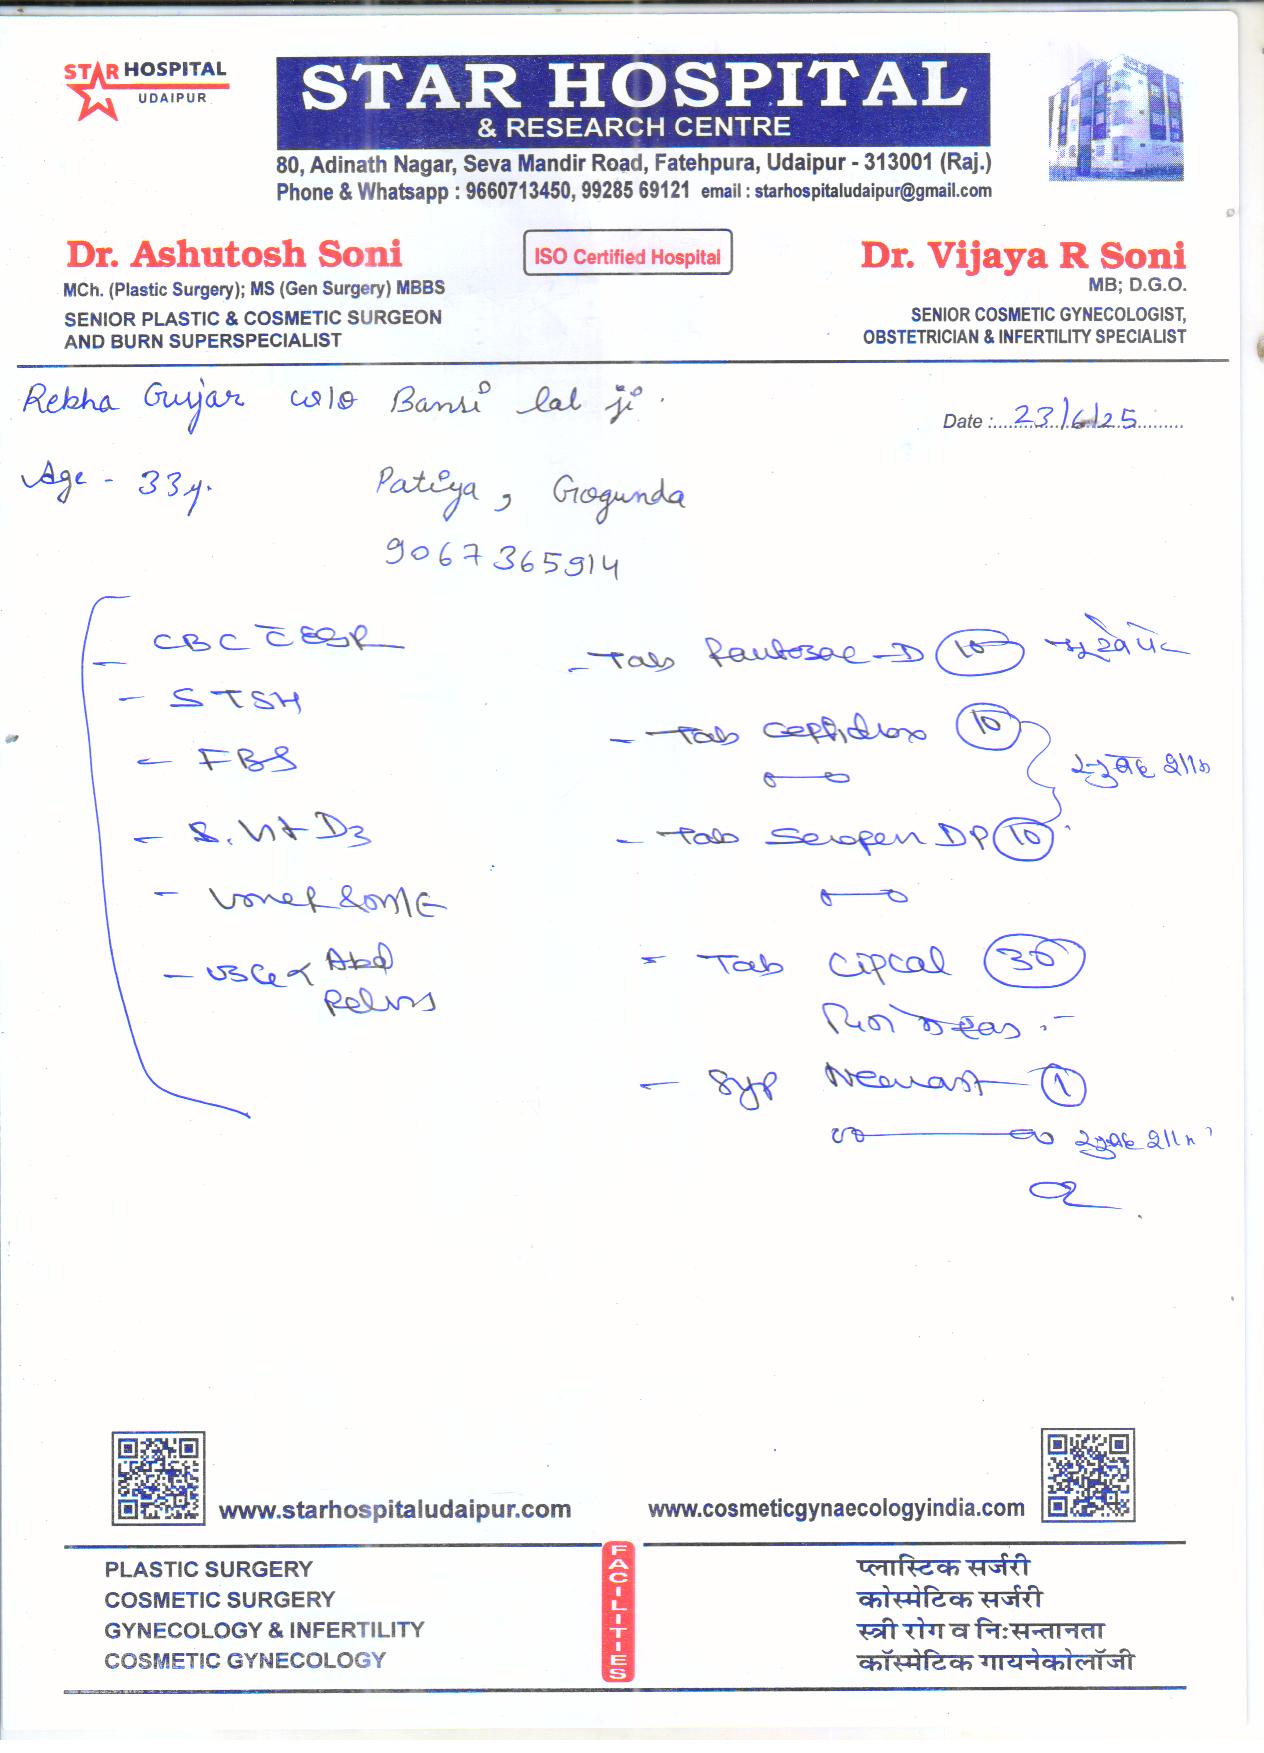 STAR HOSPITAL
UDAIPUR
STAR HOSPITAL
& RESEARCH CENTRE
80, Adinath Nagar, Seva Mandir Road, Fatehpura, Udaipur - 313001 (Raj.)
Phone & Whatsapp : 9660713450, 99285 69121 email : starhospitaludaipur@gmail.com
Dr. Ashutosh Soni
MCh. (Plastic Surgery); MS (Gen Surgery) MBBS
SENIOR PLASTIC & COSMETIC SURGEON
AND BURN SUPERSPECIALIST
ISO Certified Hospital
Dr. Vijaya R Soni
MB; D.G.O.
SENIOR COSMETIC GYNECOLOGIST,
OBSTETRICIAN & INFERTILITY SPECIALIST
Rekha Gujar w/o Bansi lal ji.
Date :....23/6/25........
Age - 33y.
Patiya, Gogunda
9067365914
- CBC c̄ ESR
- STSH
- FBS
- S. Vit D3
- USG < Abd
Pelvis
- Tab Pantozac-D 10
- Tab 10
सुबह शाम
- Tab DP 10
- Tab Cipcal 30
- Syp 1
सुबह शाम
www.starhospitaludaipur.com
www.cosmeticgynaecologyindia.com
PLASTIC SURGERY
COSMETIC SURGERY
GYNECOLOGY & INFERTILITY
COSMETIC GYNECOLOGY
FACILITIES
प्लास्टिक सर्जरी
कोस्मेटिक सर्जरी
स्त्री रोग व निःसन्तानता
कॉस्मेटिक गायनेकोलॉजी